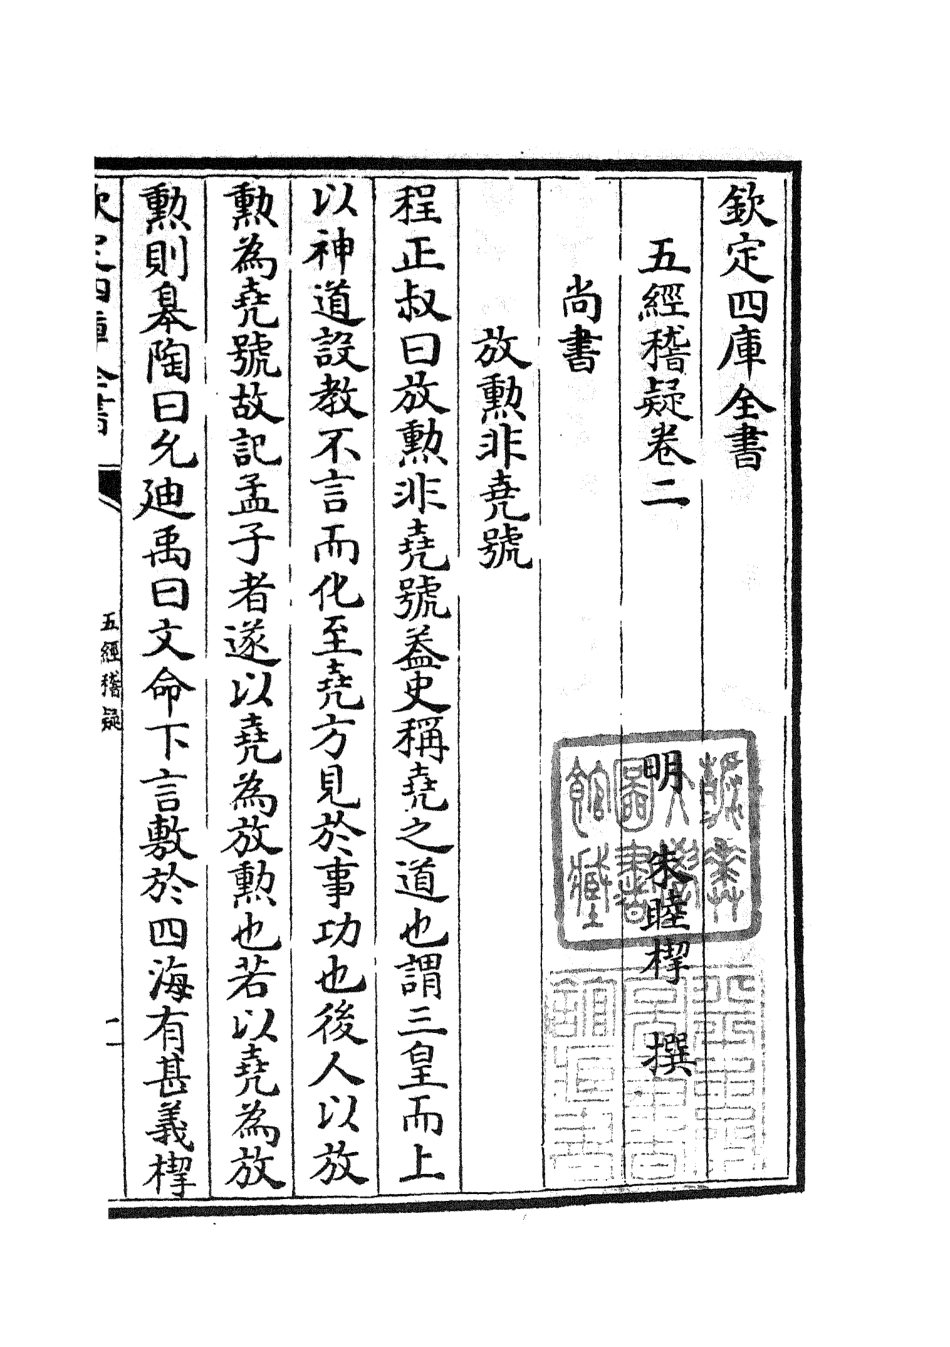 欽定四庫全書
五經稽疑卷二
明 朱睦㮮 撰
尚書
放勲非堯號
程正叔曰放勲非堯號葢史稱堯之道也謂三皇而上
以神道設教不言而化至堯方見於事功也後人以放
勲為堯號故記孟子者遂以堯為放勲也若以堯為放
勲則皋陶曰允廸禹曰文命下言敷於四海有甚義㮮
五經稽疑